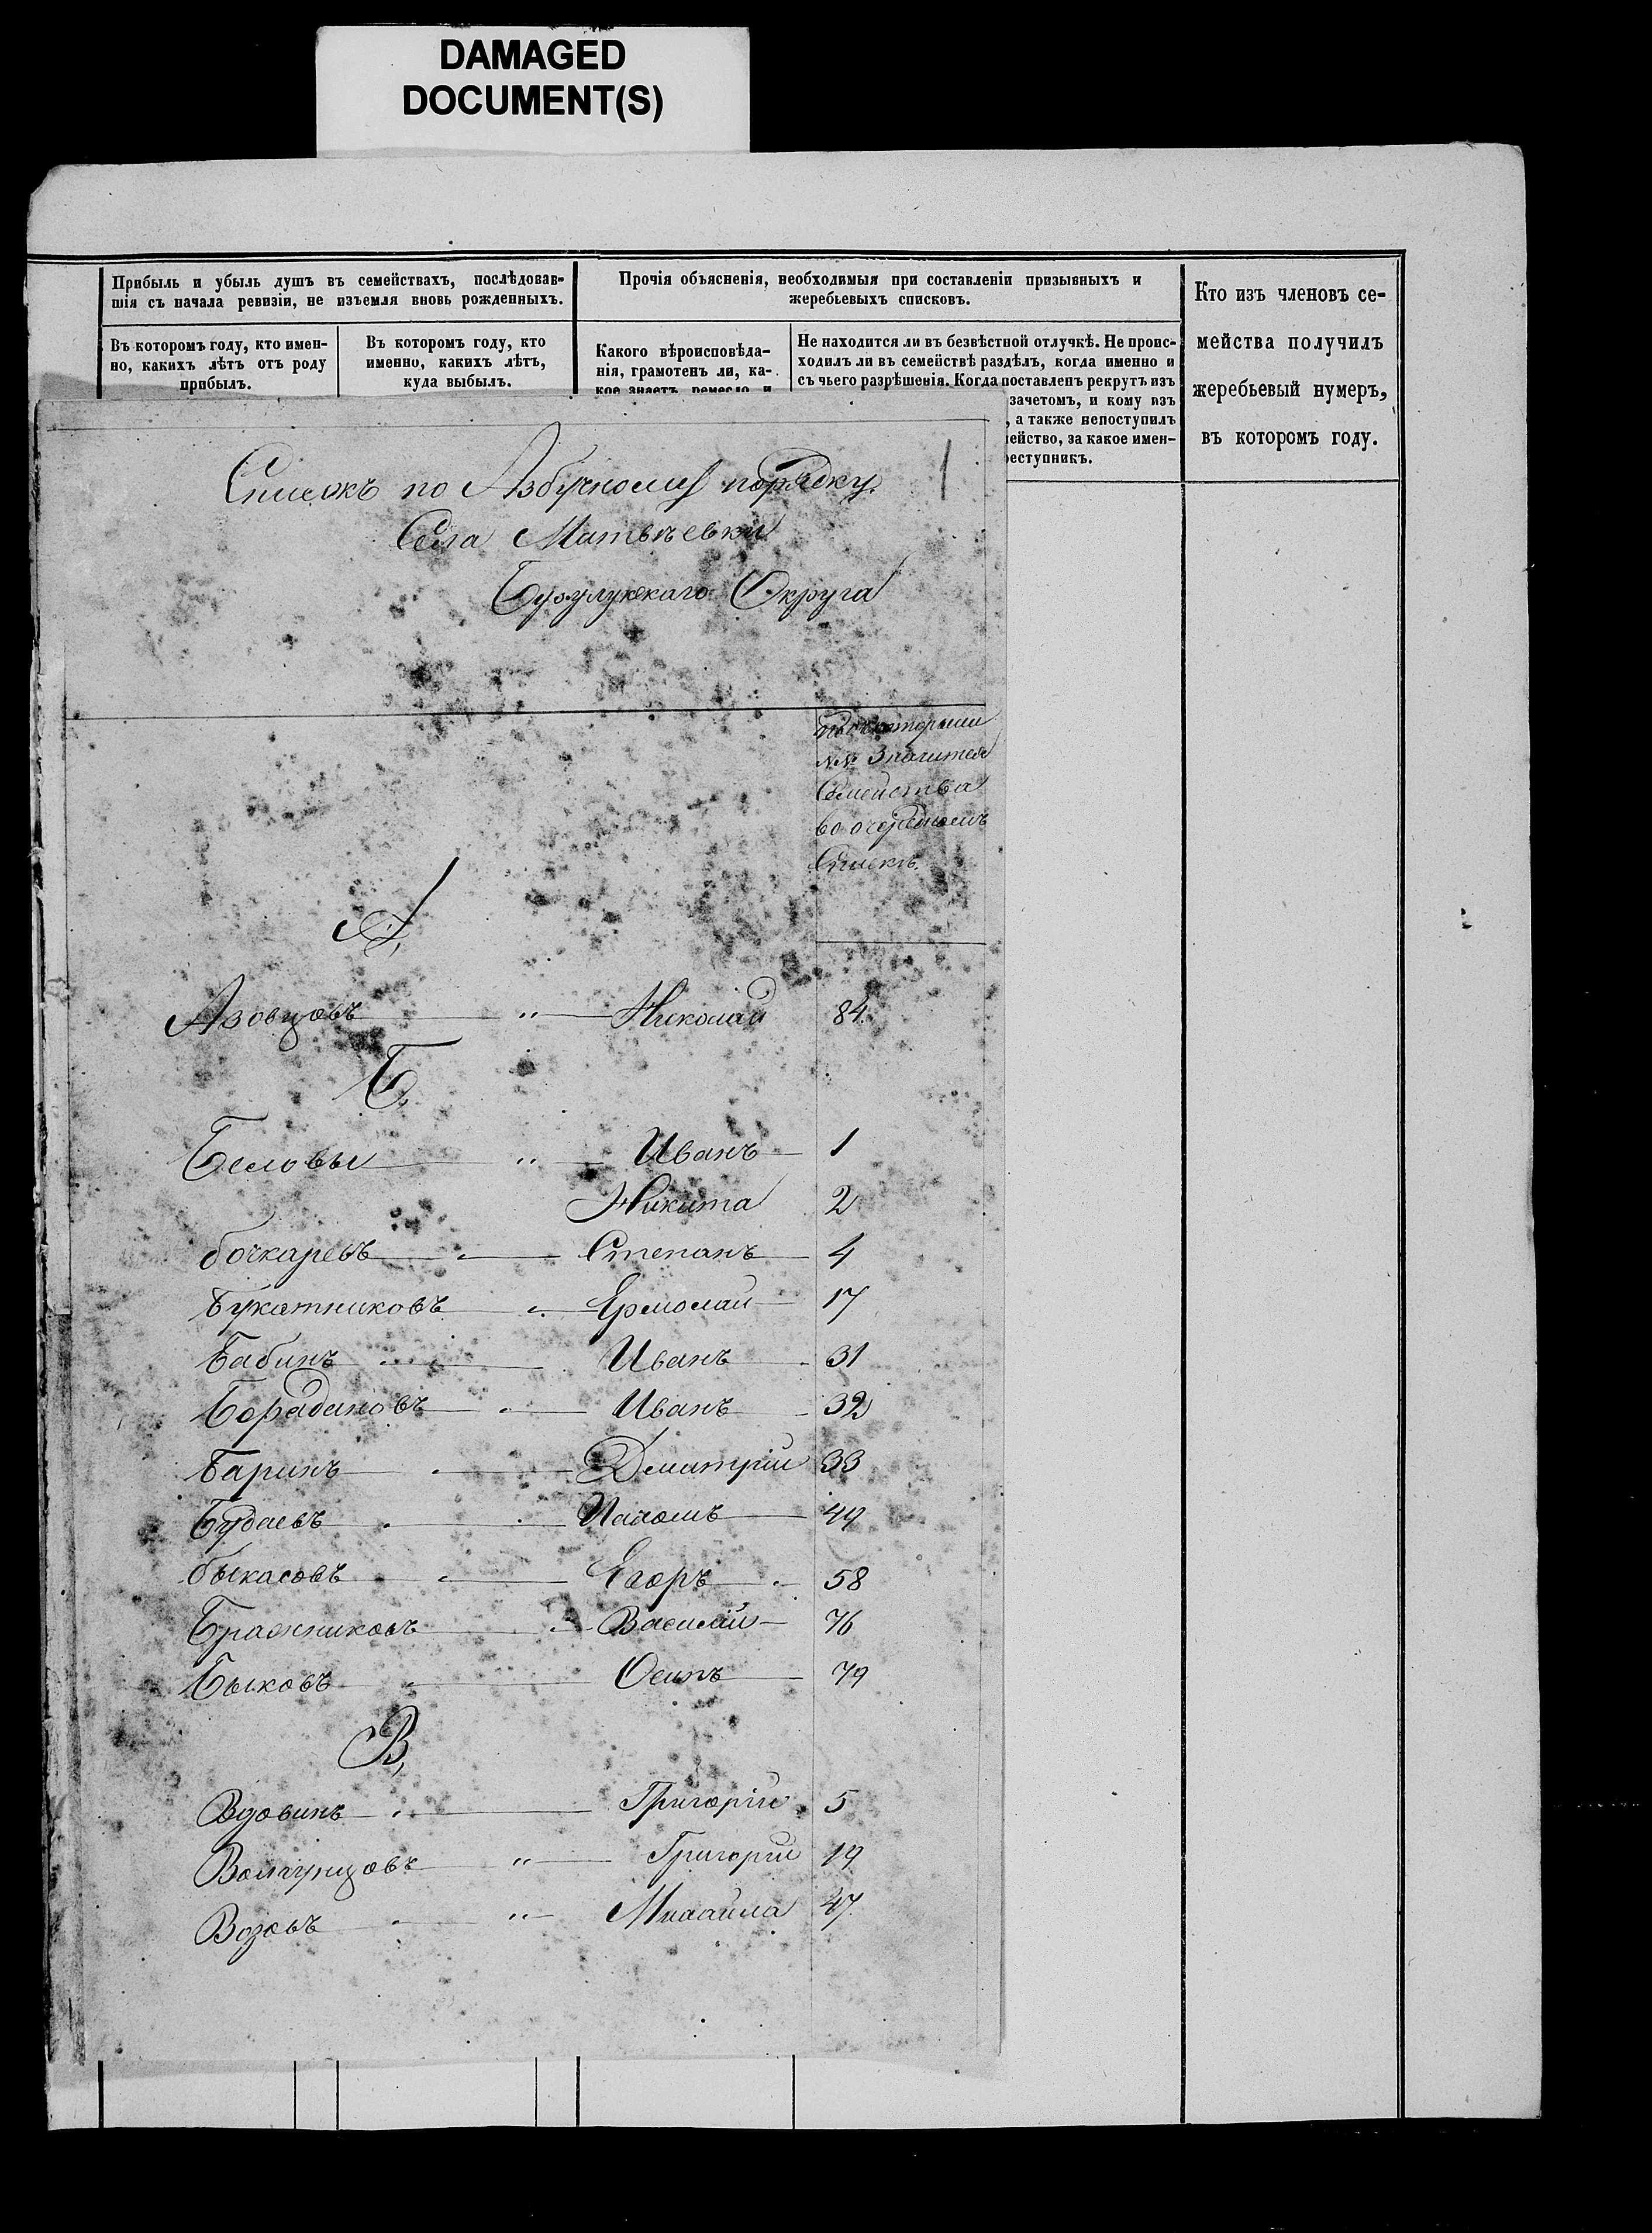 DAMAGED
DOCUMENT(S)
Прибыль и убыль душъ въ семействахъ, послѣдовав-
шія съ начала ревизіи, не изъемля вновь рожденныхъ.
Прочія объясненія, необходимыя при составленіи призывныхъ и
жеребьевыхъ списковъ.
Кто изъ членовъ се-
мейства получилъ
жеребьевый нумеръ,
въ которомъ году.
Въ которомъ году, кто имен-
но, какихъ лѣтъ отъ роду
прибылъ.
Въ которомъ году, кто
именно, какихъ лѣтъ,
куда выбылъ.
Какого вѣроисповѣда-
нія, грамотенъ ли, ка-
кое знаетъ ремесло и
Не находится ли въ безвѣстной отлучкѣ. Не проис-
ходилъ ли въ семействѣ раздѣлъ, когда именно и
съ чьего разрѣшенія. Когда поставленъ рекрутъ изъ
зачетомъ, и кому изъ
, а также непоступилъ
ейство, за какое имен-
реступникъ.
1
Списокъ по Азбучному порядку.
Села Матвѣевки
Бузулукскаго Округа
подъ которыми
№№ Значится
Семейства
во очередномъ
Спискѣ.
А,
Азовцовъ " Николай 84.
Б,
Беловы " Иванъ 1
Никита 2
бочкаревъ " Степанъ 4
Букатниковъ " Ермолай 17
Бабинъ " Иванъ 31
Борадиновъ " Иванъ 32
Баринъ " Дмитрій 33
Будаевъ " Пахомъ 49
быкасовъ " Егоръ 58
Бражниковъ " Василий 76
Быковъ " Осипъ 79
В,
Вдовинъ " Григорій 5
Волгунцовъ " Григорій 19
Возовъ " Михайла 47.